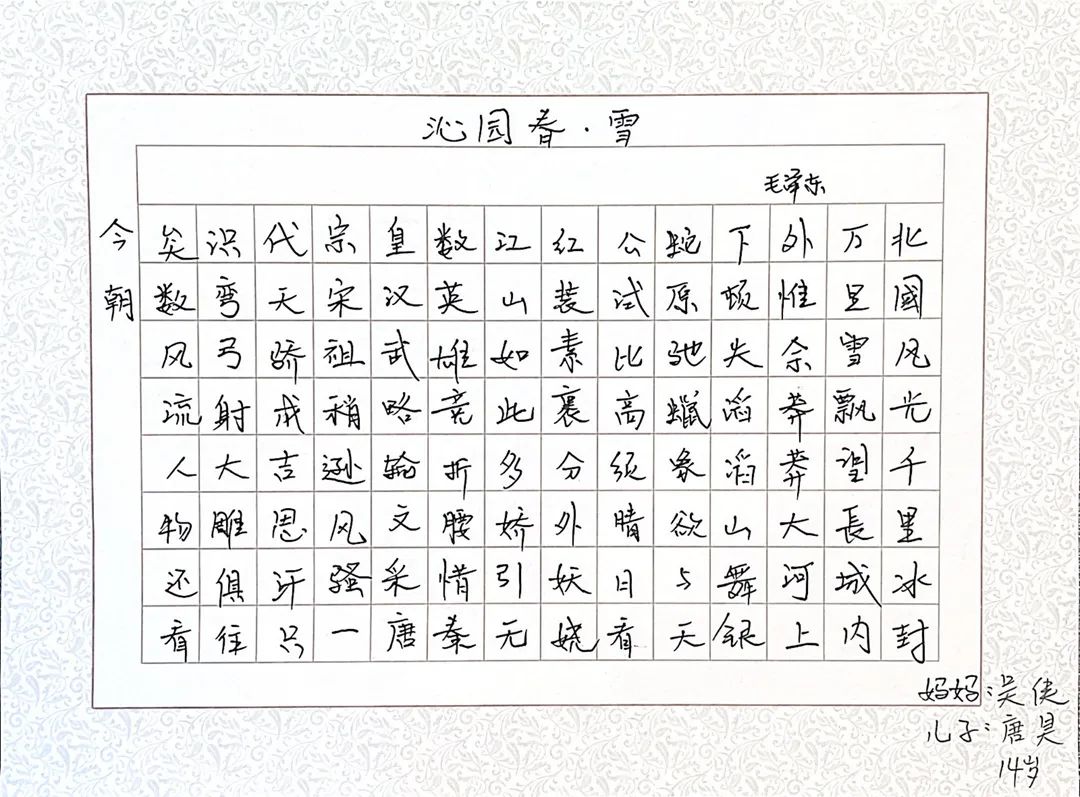 沁园春·雪
毛泽东
北國风光千里冰封
万里雪飘望長城内
外惟余莽莽大河上
下顿失滔滔山舞银
蛇原驰蠟象欲与天
公试比高须晴日看
红装素裹分外妖娆
江山如此多娇引无
数英雄竞折腰惜秦
皇汉武略输文采唐
宗宋祖稍逊风骚一
代天骄成吉思汗只
识弯弓射大雕俱往
矣数风流人物还看
今朝
妈妈:吴
儿子:唐昊
14岁